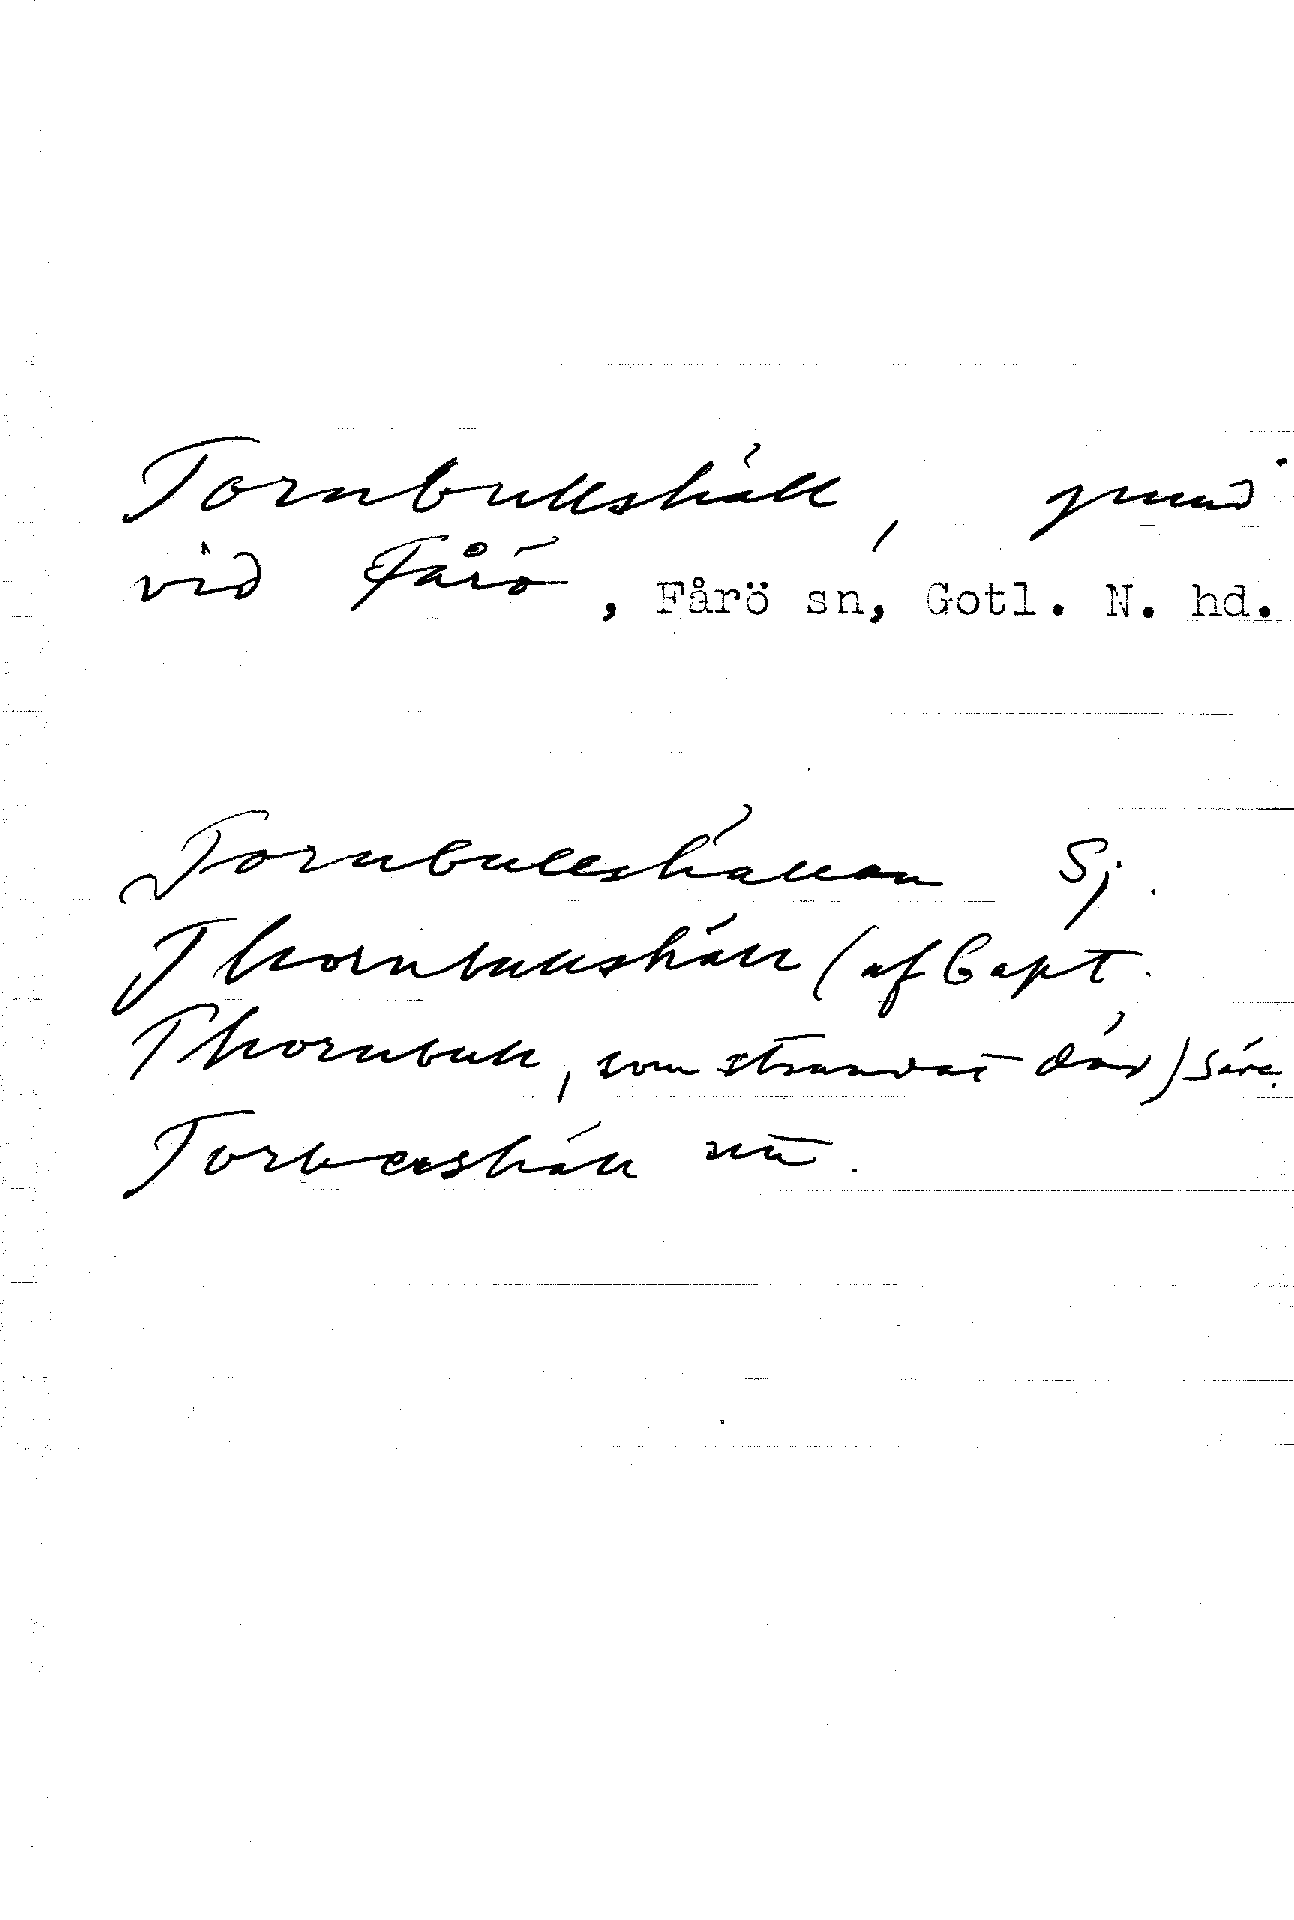 Tornbullshäll, grund
vid Fårö, Fårö sn, Gotl. N. hd.
Tornbullshällan Sj.
Thornbullshäll (af Capt.
Thornbull, som strandat där) Säve.
häll nu.